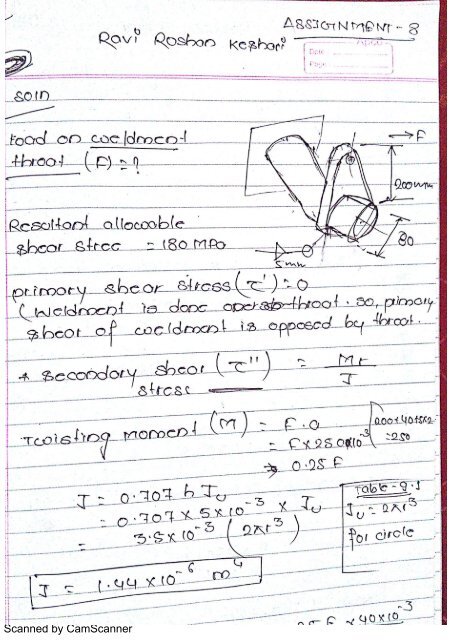 ASSIGNMENT-8
Ravi Roshan Keshari
Date
Page
Soln
Load on weldment
throat (F) = ?
→F
200mm
80
5mm
Resultant allowable
shear stree = 180 MPa
primary shear stress (τ') = 0
(weldment is done throat. so, primary
shear of weldment is opposed by throat.
* Secondary shear (τ'') = Mr/J
stress
Twisting moment (M) = F.O
200+40+5x2
=250
= F×250×10⁻³
⇒ 0.25 F
J = 0.707 h Ju
= 0.707 × 5×10⁻³ × Ju
= 3.5×10⁻³ (2πr³)
Table-9.1
Ju = 2πr³
for circle
J = 1.44 ×10⁻⁶ m⁴
F ×40×10⁻³
Scanned by CamScanner